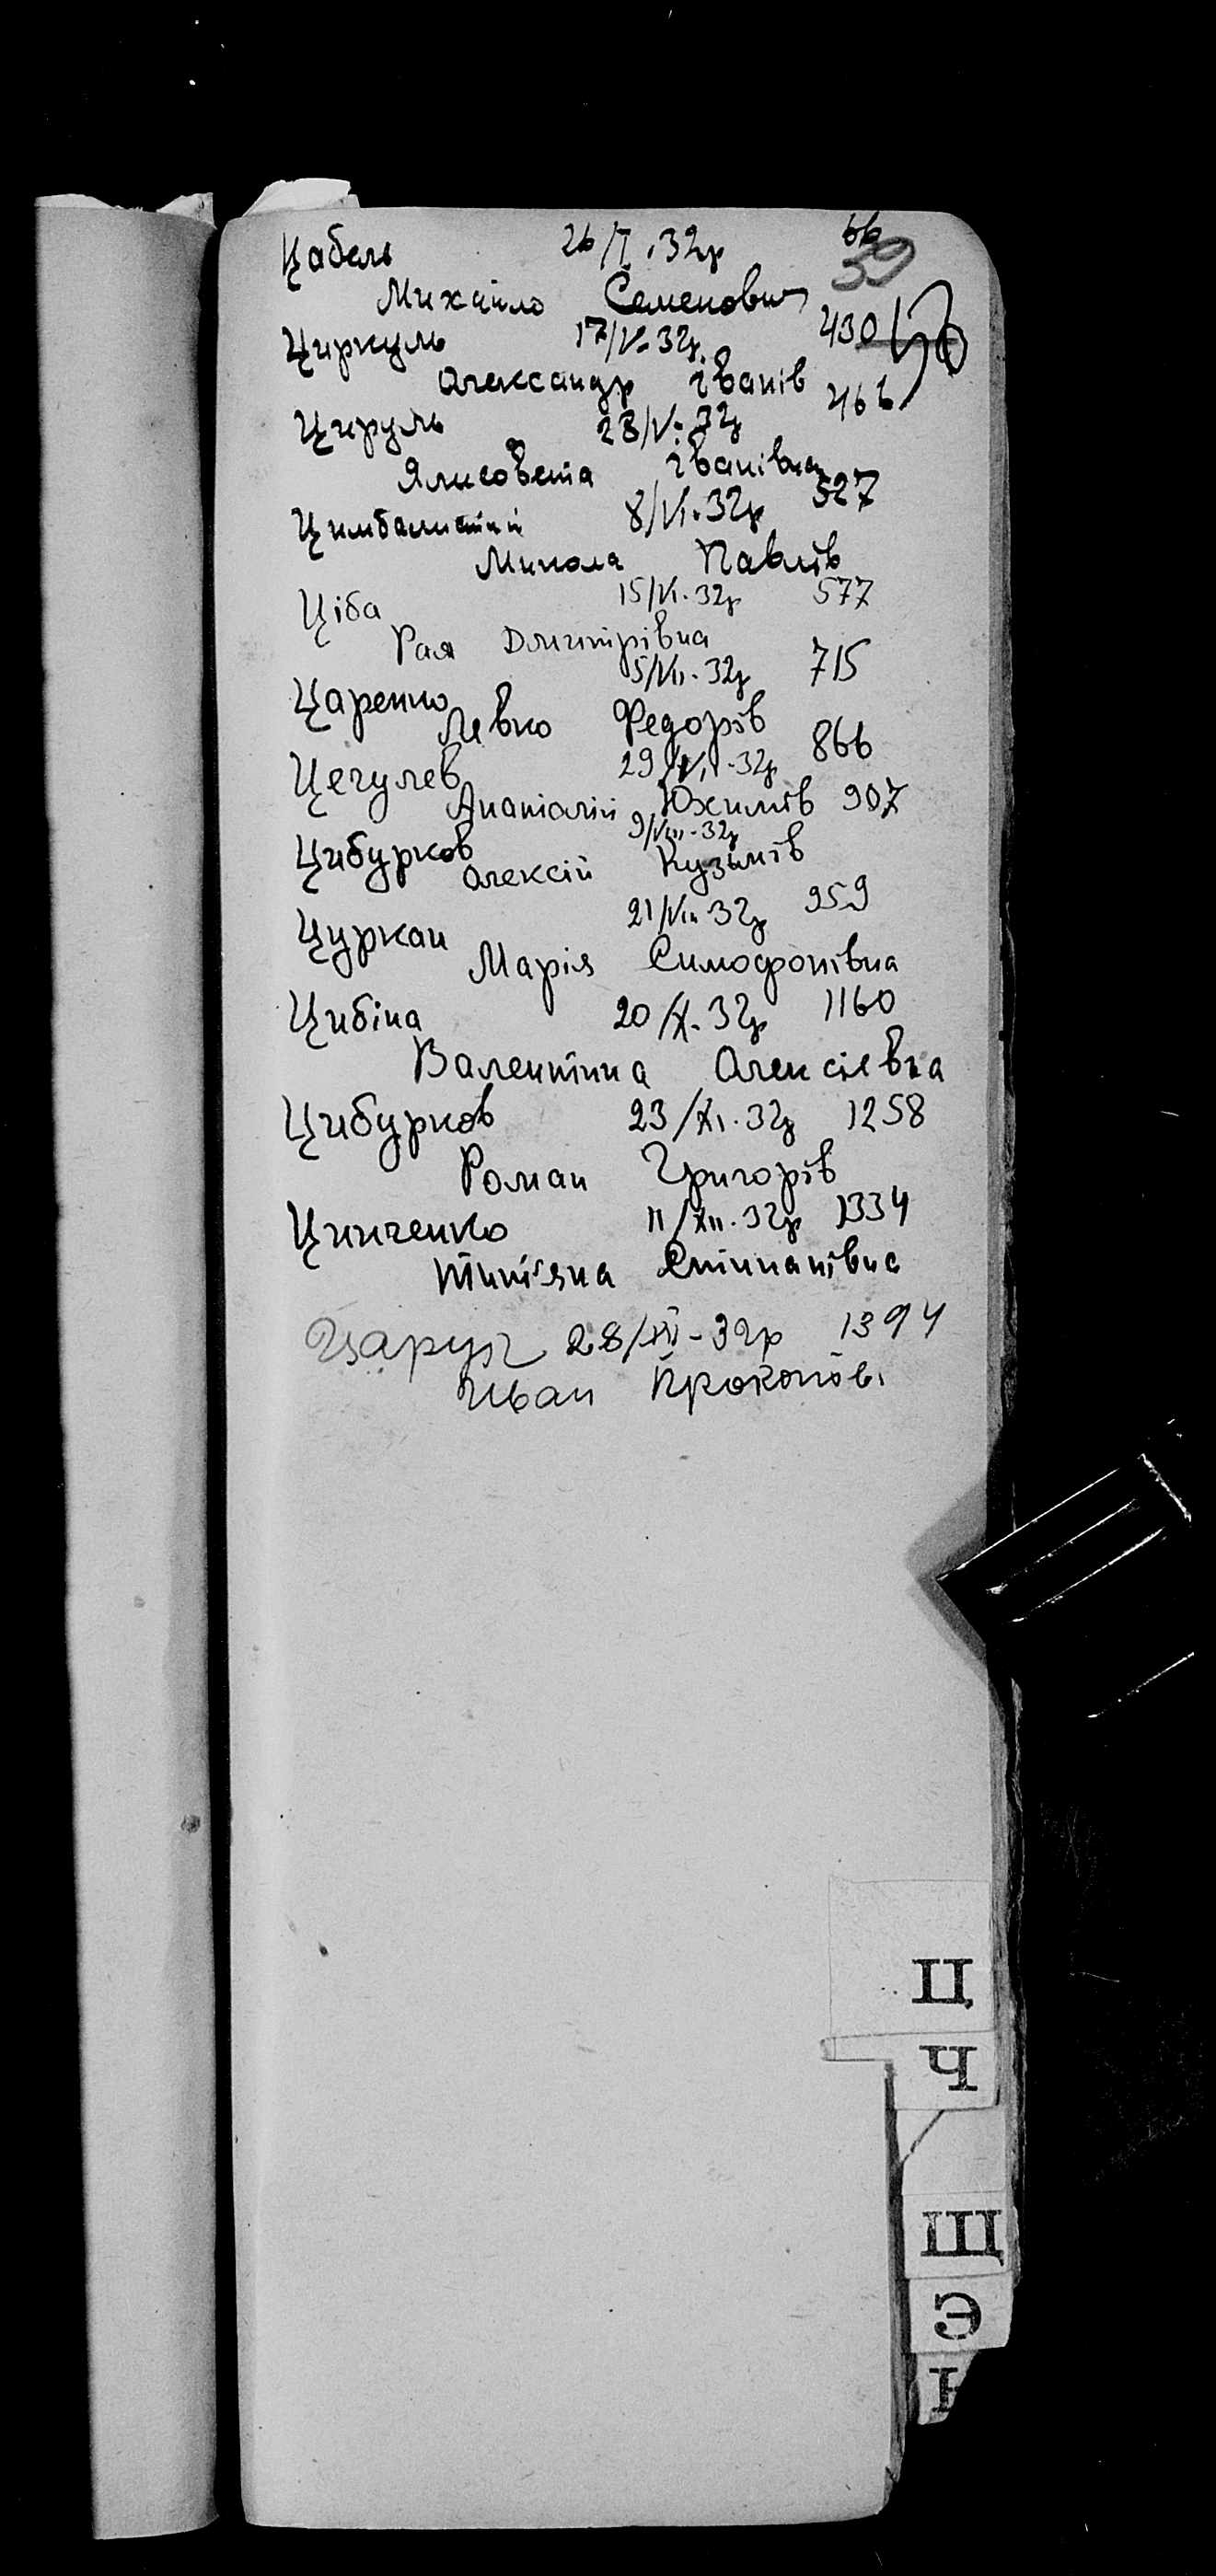 Цабель 26/I.32р 66
39
Михайло Семенович
Циркуль 17/V.32р 430
Олександр Іванів
Цируль 23/V.32р 466
Ялисовета Іванівна
Цимбалистий 8/VI.32р 527
Микола Павлів
Ціба 15/VI.32р 577
Рая Дмитрівна
Царенко 5/VII.32р 715
Левко Федорів
Цегулев 29/VII.32р 866
Анатолій Юхимів
Цибурков 9/VIII.32р 907
Олексій Кузьмів
Цуркан 21/VIII.32р 959
Марія Симофонівна
Цибіна 20/X.32р 1160
Валентина Олексієвна
Цибурков 23/XI.32р 1258
Роман Григорів
Цинченко 11/XII.32р 1334
Титяна Степанівна
Царук 28/XII-32р 1394
Иван Прокопов.
Ц
Ч
Щ
Э